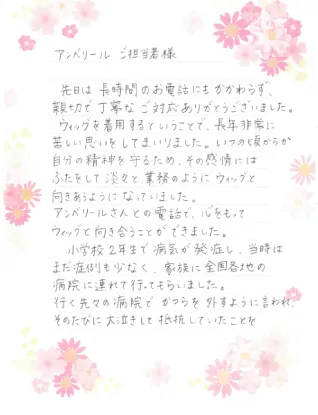 アンベリール ご担当者様
先日は 長時間のお電話にもかかわらず、
親切で 丁寧な ご対応ありがとうございました。
ウィッグを着用するということで、長年非常に
苦しい思いを してまいりました。いつの頃からか
自分の精神を守るため、その感情には
ふたをして 淡々と 業務のように ウィッグと
向きあうように なっていました。
アンベリールさんとの電話で、心をもって
ウィッグと向き合うことが できました。
小学校2年生で 病気が 発症し、当時は
まだ症例も少なく、家族に 全国各地の
病院に 連れて行ってもらいました。
行く先々の病院で かつらを 外すように 言われ、
そのたびに 大泣きして 抵抗していたことを